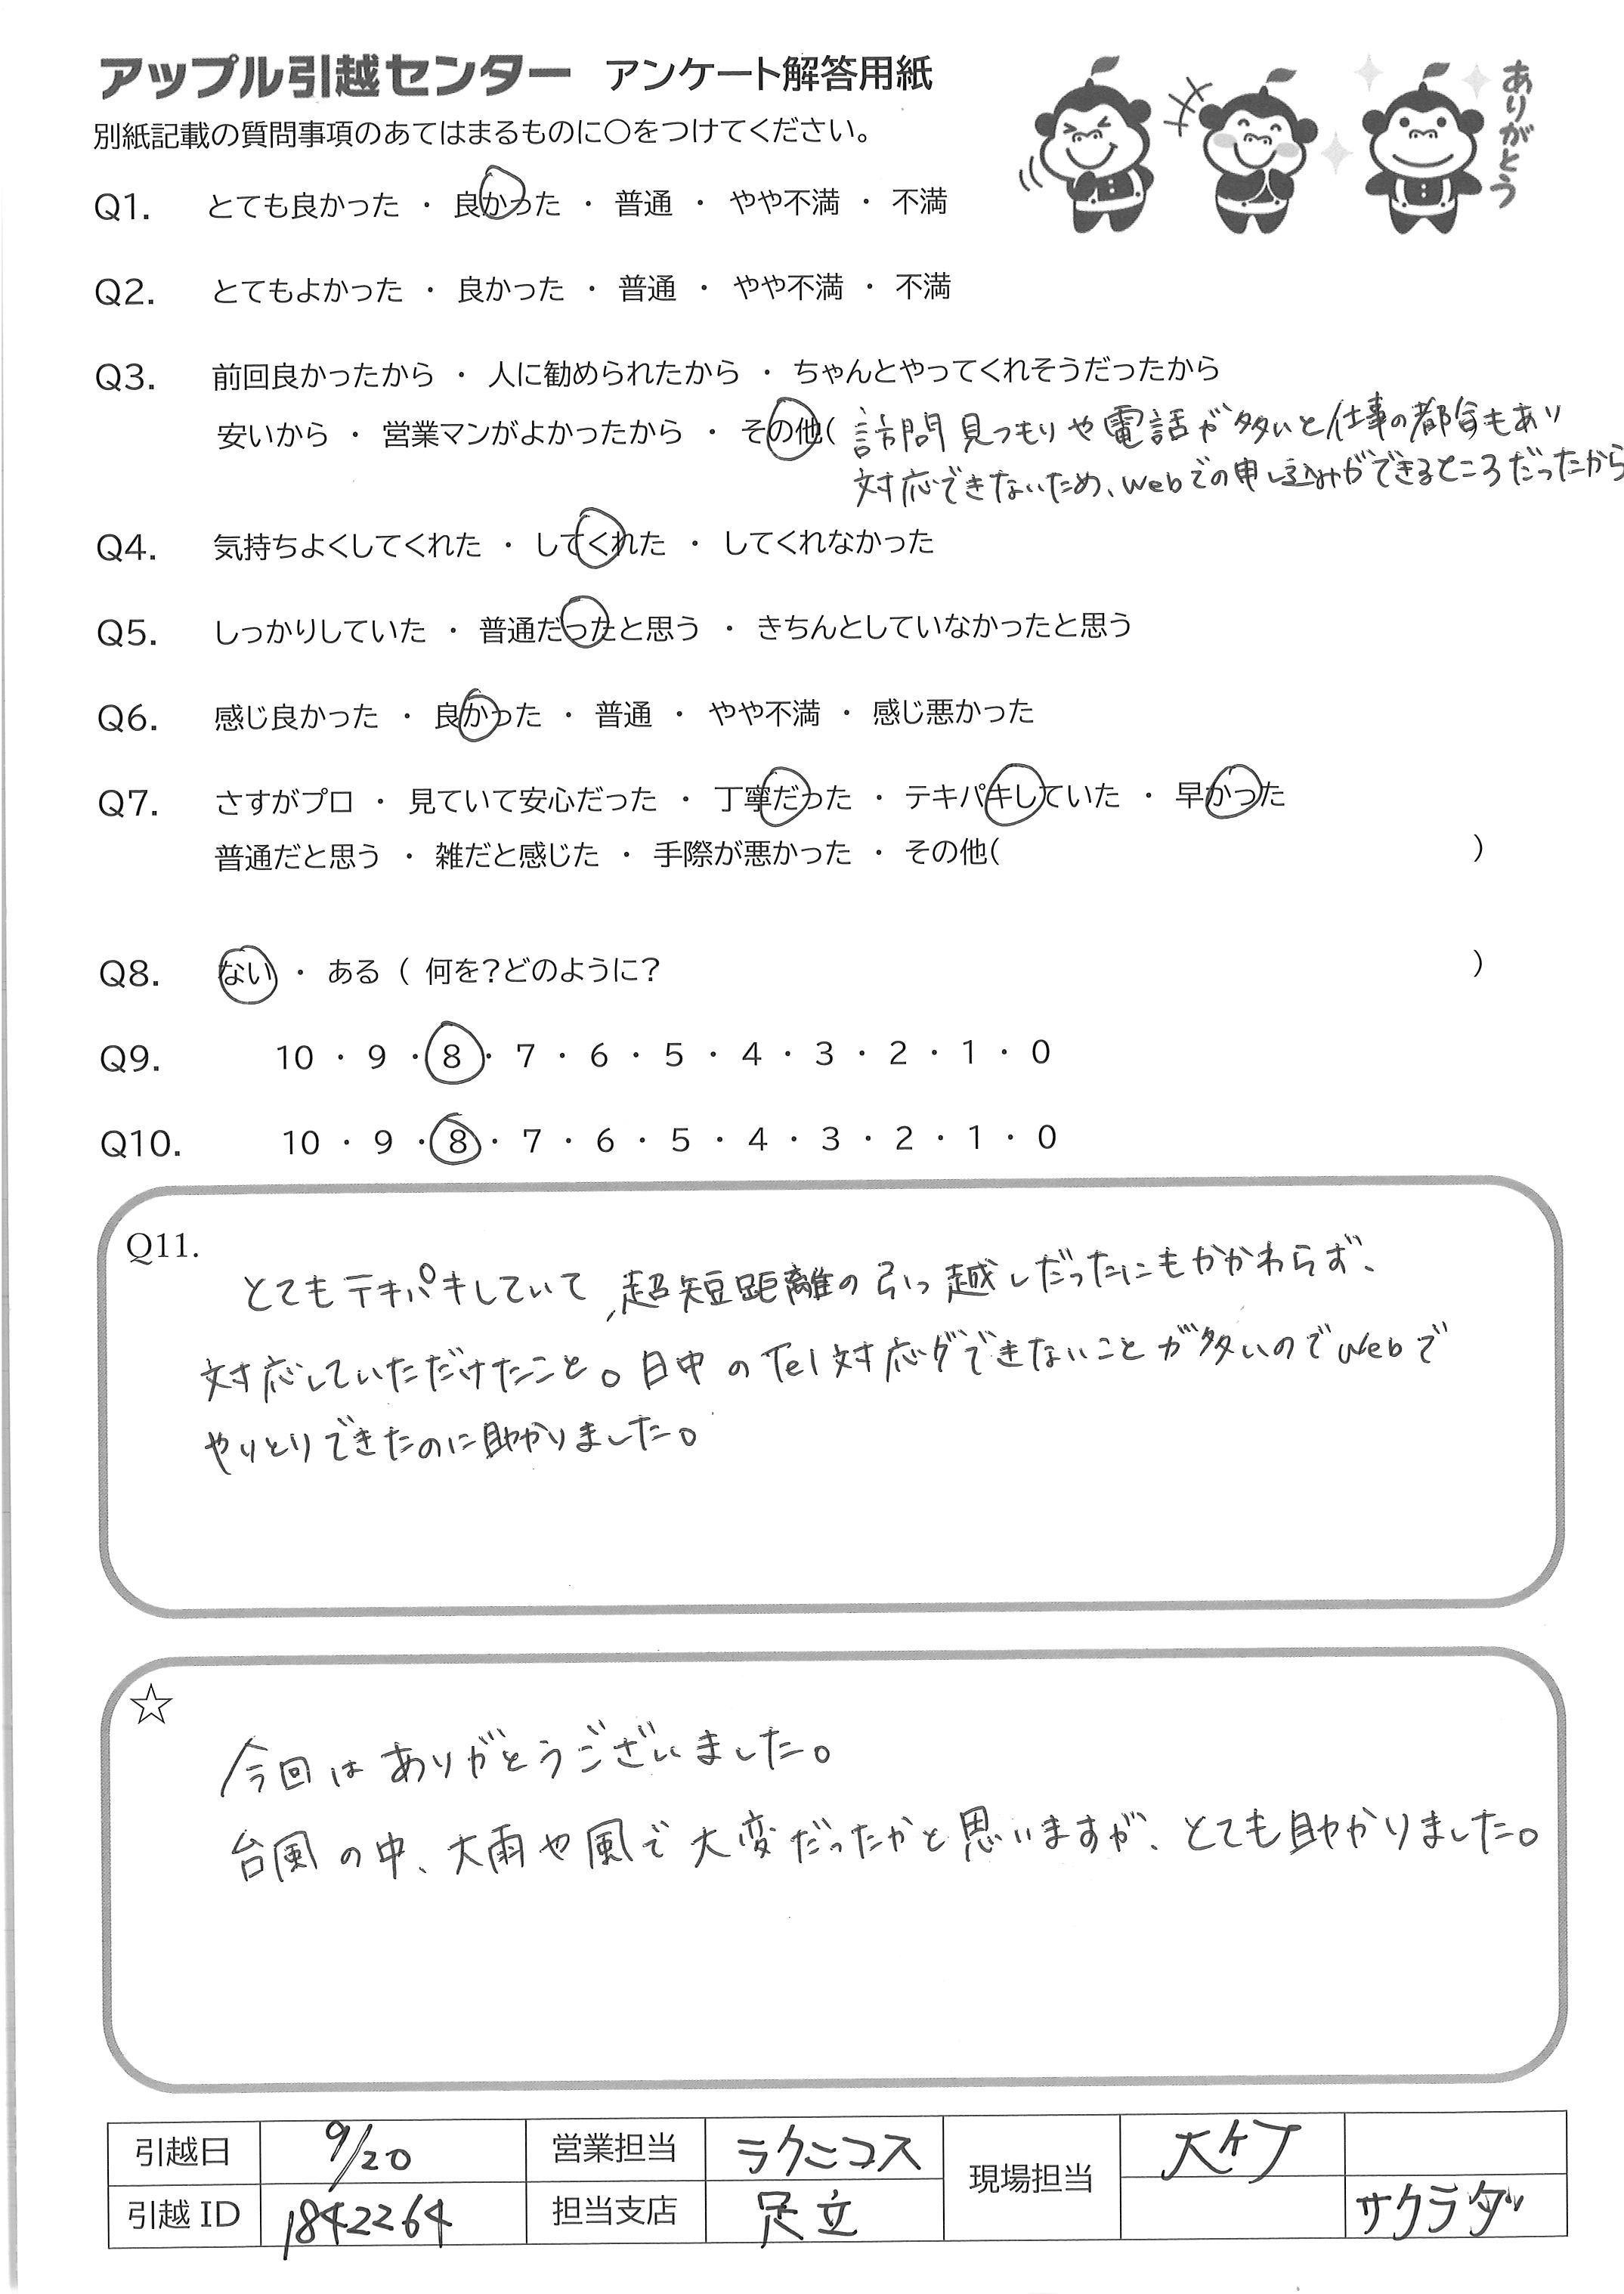 アップル引越センター アンケート解答用紙
ありがとう
別紙記載の質問事項のあてはまるものに○をつけてください。
Q1. とても良かった ・ 良かった ・ 普通 ・ やや不満 ・ 不満
Q2. とてもよかった ・ 良かった ・ 普通 ・ やや不満 ・ 不満
Q3. 前回良かったから ・ 人に勧められたから ・ ちゃんとやってくれそうだったから
安いから ・ 営業マンがよかったから ・ その他( 訪問見つもりや電話が多いと仕事の都合もあり
対応できないため、webでの申し込みができるところだったから
Q4. 気持ちよくしてくれた ・ してくれた ・ してくれなかった
Q5. しっかりしていた ・ 普通だったと思う ・ きちんとしていなかったと思う
Q6. 感じ良かった ・ 良かった ・ 普通 ・ やや不満 ・ 感じ悪かった
Q7. さすがプロ ・ 見ていて安心だった ・ 丁寧だった ・ テキパキしていた ・ 早かった
普通だと思う ・ 雑だと感じた ・ 手際が悪かった ・ その他( )
Q8. ない ・ ある ( 何を?どのように? )
Q9. 10 ・ 9 ・ 8 ・ 7 ・ 6 ・ 5 ・ 4 ・ 3 ・ 2 ・ 1 ・ 0
Q10. 10 ・ 9 ・ 8 ・ 7 ・ 6 ・ 5 ・ 4 ・ 3 ・ 2 ・ 1 ・ 0
Q11.
とてもテキパキしていて、超短距離の引っ越しだったにもかかわらず、
対応していただけたこと。日中のTel対応ができないことが多いのでwebで
やりとりできたのに助かりました。
☆
今回はありがとうございました。
台風の中、大雨や風で大変だったかと思いますが、とても助かりました。
引越日 9/20 営業担当 ラクニコス 現場担当 大ケブ
引越ID 1842264 担当支店 足立 サクラダ